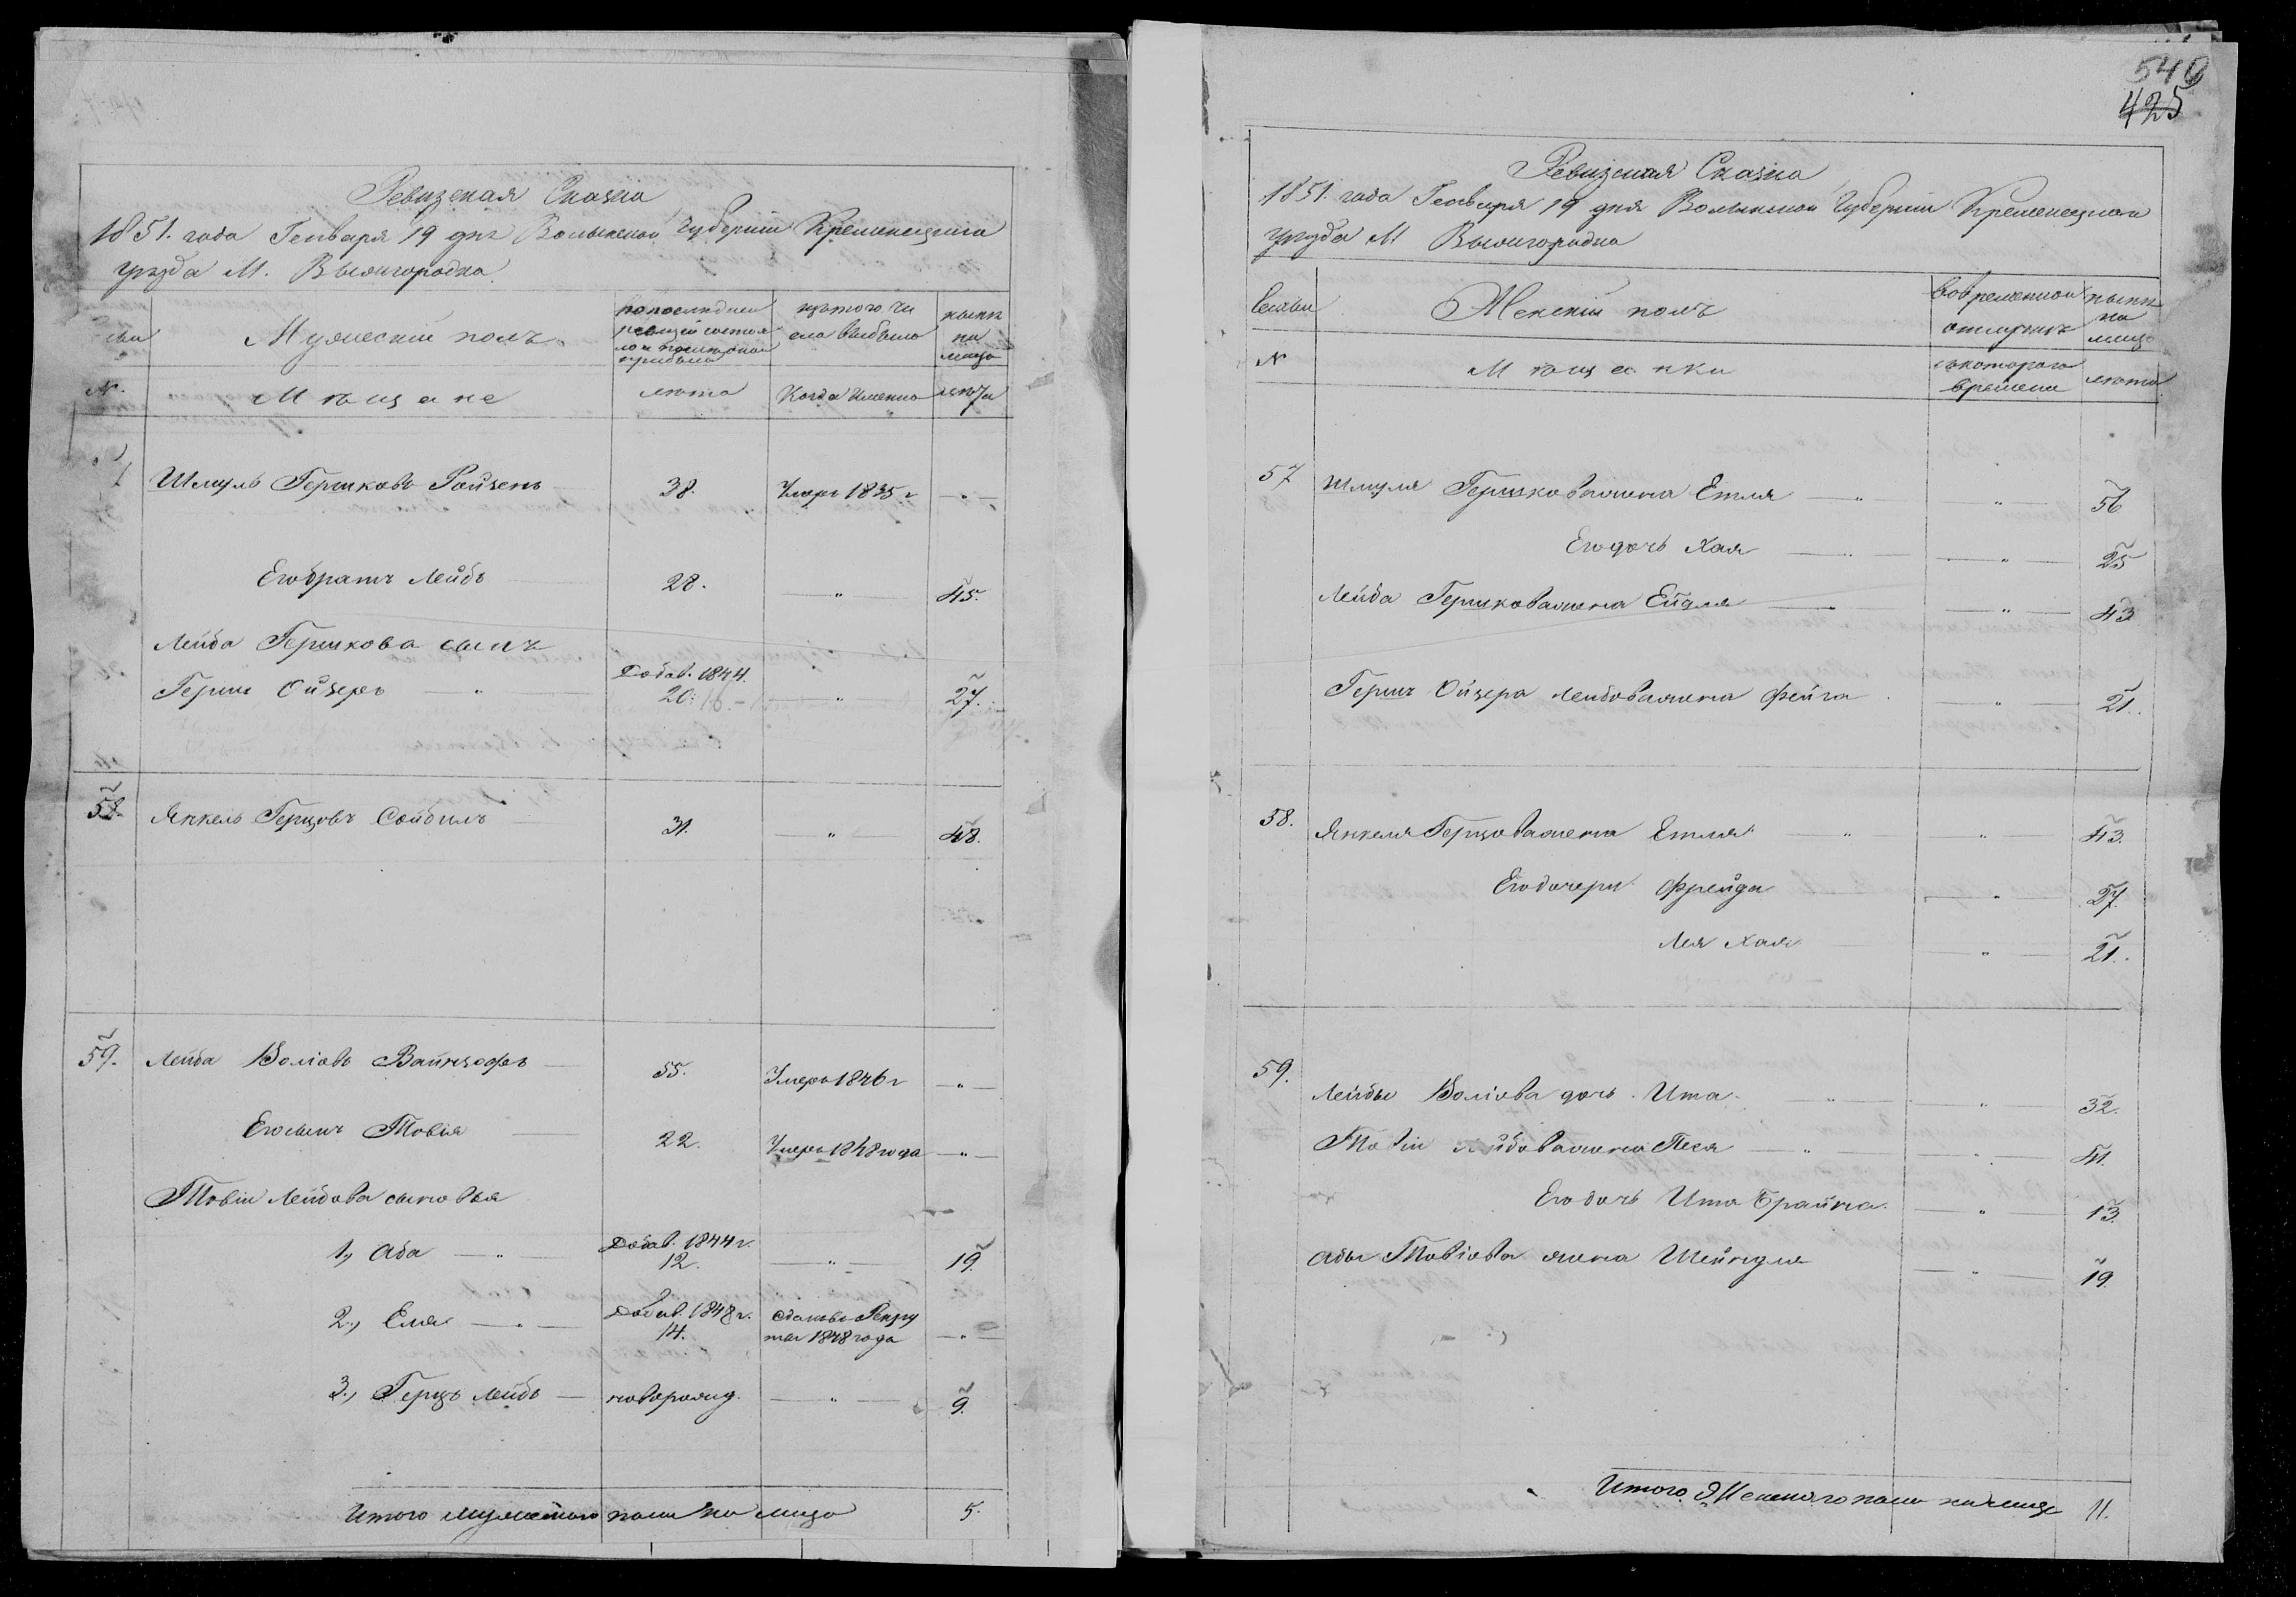 Ревизская Сказка
1851. года Генваря 19 дня Волынской Губернии Кременецкаго
уезда М. Вышгородка
Мужеский полъ
по последней ревизии состояло и после оной прибыло
изъ того числа выбыло
ныне на лицо
№.
Мѣщане
лѣта
Когда именно
лѣта
Шмуль Гершковъ Ройзенъ 38. Умеръ 1835 г — " —
Его братъ Лейбъ 28. — " — 45.
Лейба Гершкова сынъ
Гершъ Ойзеръ — " — Добав. 1844. 20: — " — 27.
58. Янкель Герцовъ Сойбилъ 31. — " — 48.
59. Лейба Волiовъ Вайнцофъ 55. Умеръ 1846 г — " —
Его сынъ Товiя 22. Умеръ 1848 года — " —
Товiи Лейбова сыновья
1, Аба — " — Добав. 1844 г. 12. — " — 19.
2, Еля — " — Добав. 1848 г. 14. Сданъ въ Рекруты 1848 года — " —
3, Герцъ Лейбъ — новорожд. — " — 9.
Итого мужескаго пола на лицо 5.
540
425
Ревизская Сказка
1851. года Генваря 19 дня Волынской Губернии Кременецкаго
уезда М Вышгородка
Семьи
Женскiй полъ
Во временной отлучке
ныне на лицо
№
Мѣщанки
съ котораго времени
лѣта
57 Шмуля Гершкова жена Етля — " — " — 56
Его дочь Хая — " — " — 25
Лейба Гершкова жена Ейдля — " — " — 43
Гершъ Ойзера Лейбова жена Фейга — " — 21.
58. Янкеля Герцова жена Етля — " — " — 43.
Его дочери Фрейда — " — 27.
Лея Хая — " — 21.
59. Лейбы Волiова дочь Ита — " — " — 32.
Товiи Лейбова жена Песя — " — " — 41.
Его дочь Ита Брайна — " — 13.
Абы Товiова жена Шейндля — " — 19.
Итого Женскаго пола на лицо 11.